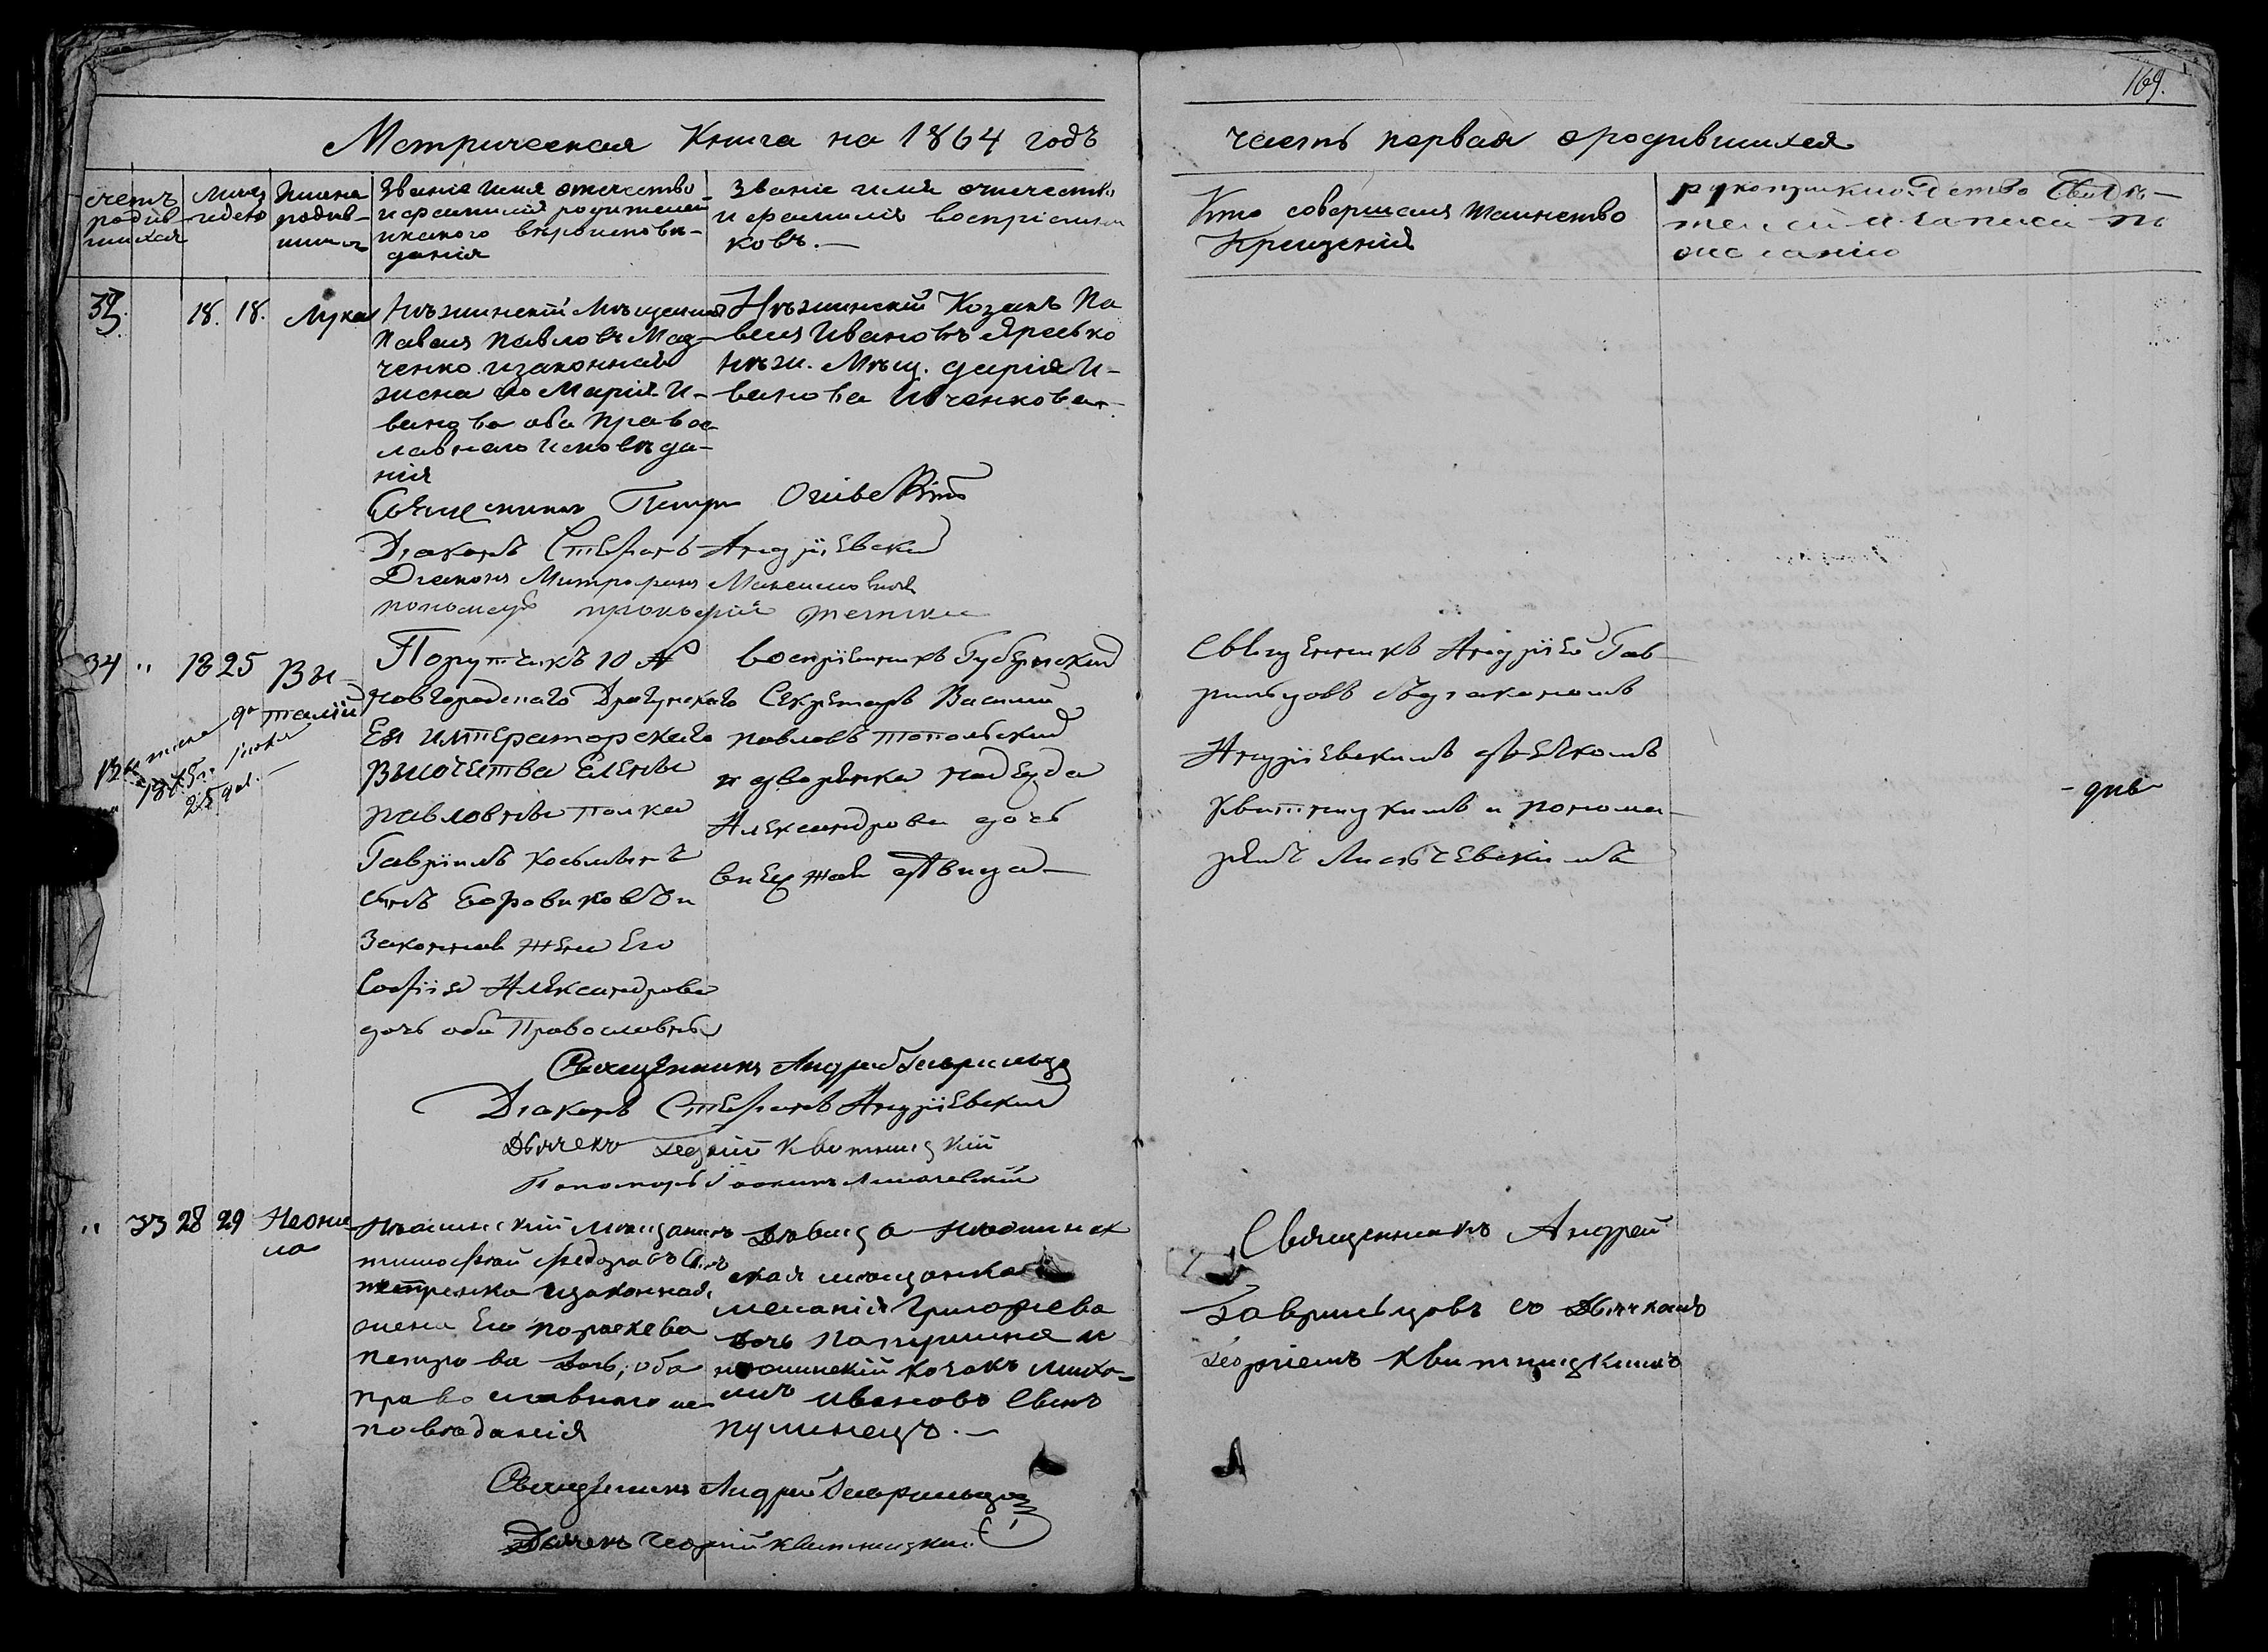 169.
Метрическая Книга на 1864 годъ
часть первая о родившихся
счетъ
родив
шихся
месяц
и день
Имена
родив-
шихся
Званіе имя отечество
и фамилія родителей
и какого вѣроисповѣ-
данія
Званіе имя отечество
и фамилія воспріемни
ковъ.—
Кто совершалъ таинство
Крещенія
рукоприкладство свидѣ-
телей и записи по
желанію
33. 18. 18. Лука
Нѣжинскій Мѣщанинъ
Павелъ Павловъ
ченко и законная
жена его Марія И-
ванова оба Правос
лавнаго исповѣда-
нія
Нѣжинскій Козакъ Па
велъ Ивановъ Яресько
Нѣжи. Мѣщ. Дарія И-
ванова Ивченкова
Священникъ Петръ
Діаконъ Стефанъ Андріевскій
Діаконъ Митрофанъ
пономарь прокофій
34 " 18 25 Ви-
талій
1875 г.
25 дня.
Поручикъ 10 №
Новгородскаго Драгунскаго
Ея Императорскаго
Высочества Елены
Павловны полка
Гавріилъ Косьминъ
сынъ Боровиковъ и
Законная жена Его
Софія Александрова
дочь оба Православны
воспріемникъ Губернскій
Секретарь Василій
павловъ Топольскій
и дворянка Надежда
Александрова дочь
Священникъ Андрей Гав-
рильцовъ съ діакономъ
Андріевскимъ дьячкомъ
Квитницкимъ и понома-
ремъ
Священникъ Андрей Гаврильцо
Діаконъ Стефанъ Андріевскій
Дьячекъ Георгій Квитницкій
Пономарь Іоакимъ
" 33 28 29 Неони
ла
Нѣжинскій мѣщанинъ
тимофѣй Федоровъ сынъ
петренко и законная
жена Его параскева
петрова дочь; оба
православнаго ис
повѣданія
дѣвица Нѣжинск
ая мѣщанка
меланія Григорьева
дочь и
нѣжинскій козакъ миха-
илъ Ивановъ Сынъ
пулинецъ.—
Священникъ Андрей
Гаврильцовъ со Дьячкомъ
Георгіемъ Квитницкимъ
Священникъ Андрей Гаврильцо
Дьячекъ Георгій Квитницкій